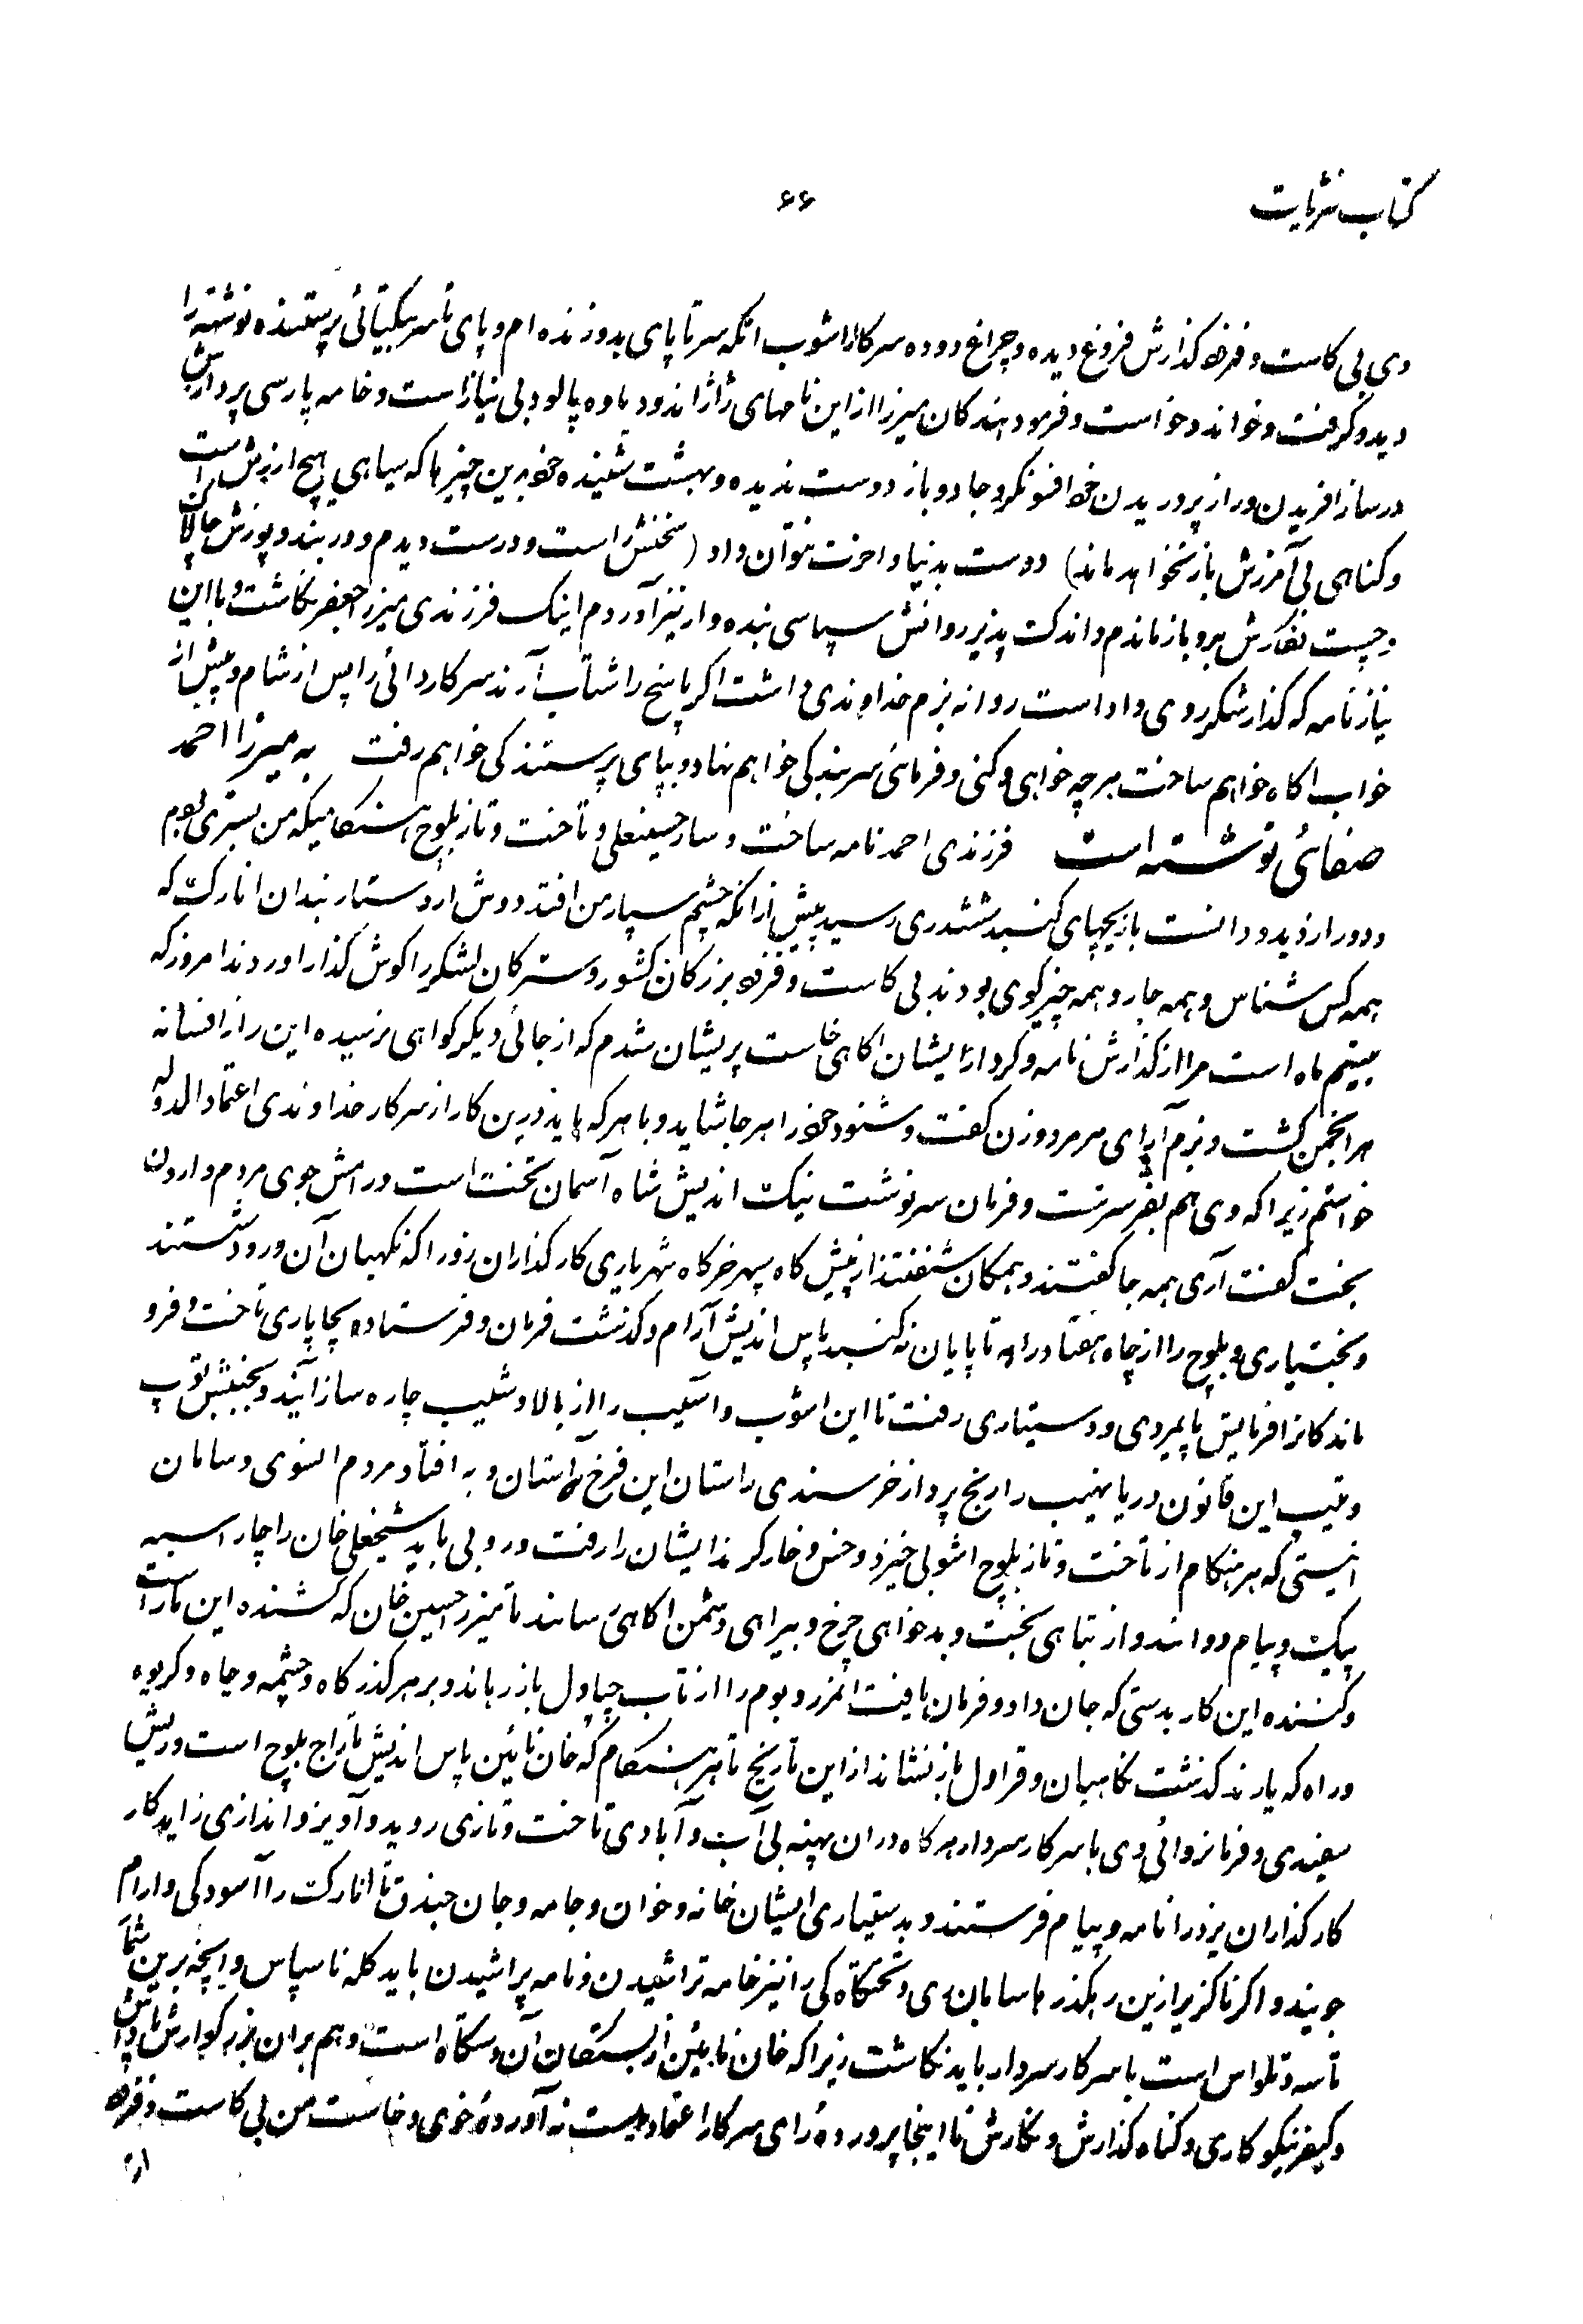 کتاب نثریات
۶۶
وی بی کاست و فزود گذارش فروغ دیده و چراغ دوده سرکار اشوب انکه سرتا پای بدو زنده ام و پای نامه بیکتائی پرستنده نوشته را
دید و گرفت و خواند و خواست و فرمود بندکان میرزا از این نامهای ژاژ اندود یاوه پالود بی نیاز است و خامه پارسی پردازش
در ساز افریدن و راز پروریدن خود افسونکر و جادو باز دوست ندیده و بهشت شنیده خود برین چیزها که سیاهی بهیچ ارزش است
و کناهی بی آمرزش باز نخواهد ماند) دوست بدنیا و اخرت نتوان داد (سخنش راست و درست دیدم و در بند و پوزش چالاک
و چست نفکرش برو باز ماندم و اندکت پذیر روانش سپاسی بنده وار نیز آوردم اینک فرزندی میرزا جعفر نگاشت و با این
نیاز نامه که گذارشگر روی داد است روانه بزم خداوندی داشت اکر پاسخ را شتاب آرند سرکار دائی را پس از شام و پیش از
خواب اکاه خواهم ساخت هر چه خواهی و کنی و فرمائی سر بندکی خواهم نهاد و بپای پرستندکی خواهم رفت به میرزا احمد
صفائی نوشته است فرزندی احمد نامه ساخت و ساز حسینعلی و تاخت و تاز بلوچ هنکامیکه من بستری بودم
و دور از دید و دانست بازیچهای کنبد ششدری رسید پیش از انکه چشم سپار من افتد دوش از دستار بندان انارک که
همه کس شناس و همه جا رو همه چیز کوی بودند بی کاست و فزود بزرکان کشور و سترکان لشکر را کوش گذار اوردند امروز که
بیستم ماه است مرا از گذارش نامه و کردار ایشان اکاهی خاست پریشان شدم که از جائی دیکر کواهی نرسیده این راز افسانه
هر انجمن کشت و بزم آرای هر مرد و زن کفت و شنود خود را هر جا شاید و با هر که باید درین کار از سرکار خداوندی اعتماد الدوله
خواستم زیرا که وی هم بفر سرشت و فرمان سرنوشت نیک اندیش شاه آسمان تخت است و رامش جوی مردم و اردن
بخت کفت آری همه جا کفتند و همکان شنفتند از پیش کاه سپهر خرکاه شهریاری کار گذاران زور را که نکهبان آن ورود شتند
و بختیاری و بلوچ را از چاه هفتاد راه تا پایان نه کنبد پاس اندیش آرام و کذشت فرمان و فرستاده بچاپاری تاخت و فرو
ماندکانرا فرمایش پایمردی و دستیاری رفت تا این اشوب و اسیب را از بالا و شیب چاره ساز آیند و بجنبش توپ
و تیپ این قانون دریا نهیب را رنج پرداز خرسندی راستان این فرخ آستان و به افتاد مردم انسوی و سامان
انیستی که هر هنکام از تاخت و تاز بلوچ اشوبی خیزد و خس و خار کر ندایشان را رفت و روبی باید شیخعلی خان را چار اسبه
پیک و پیام دوانند و از تباهی بخت و بد خواهی چرخ و بیراهی دشمن اکاهی رسانند تا میرزا حسین خان که کشنده این بار است
و کننده این کار بدستی که جان داد و فرمان یافت انمرز و بوم را از تاب چپاول باز رهاند و بر هر گذرگاه و چشمه و چاه و کریوه
و راه که یارند کذشت نکاهبان و قراول باز نشاند از این تاریخ تا هر هنکام که خان نائین پاس اندیش تاراج بلوچ است و ریش
سفیدی و فرمانروائی وی با سرکار سردار هر کاه در ان پهنه بی آب و آبادی تاخت و تازی روید و آویز و اندازی زاید کار
کار گذاران یزد را نامه و پیام فرستند و بدستیاری ایشان خانه و خوان و جامه و جان جندق تا انارک را آسودکی و ارام
جویند و اکر ناگزیر ازین رهکذر با سامان ری و تختکاه کی را نیز خامه تراشیدن و نامه پراشیدن باید کله ناسپاس و انچه برین شما
تاسه و تلواس است با سرکار سردار باید نکاشت زیرا که خان نایئن از بستکان آن دستکاه است و هم بران بزرگوارش پاداش
و کیفر نیکو کاری و کناه کذارش و نکارش تا اینجا پرورده رای سرکار اعتماد یست نه آورده خوی و خاست من بی کاست و فزود
از